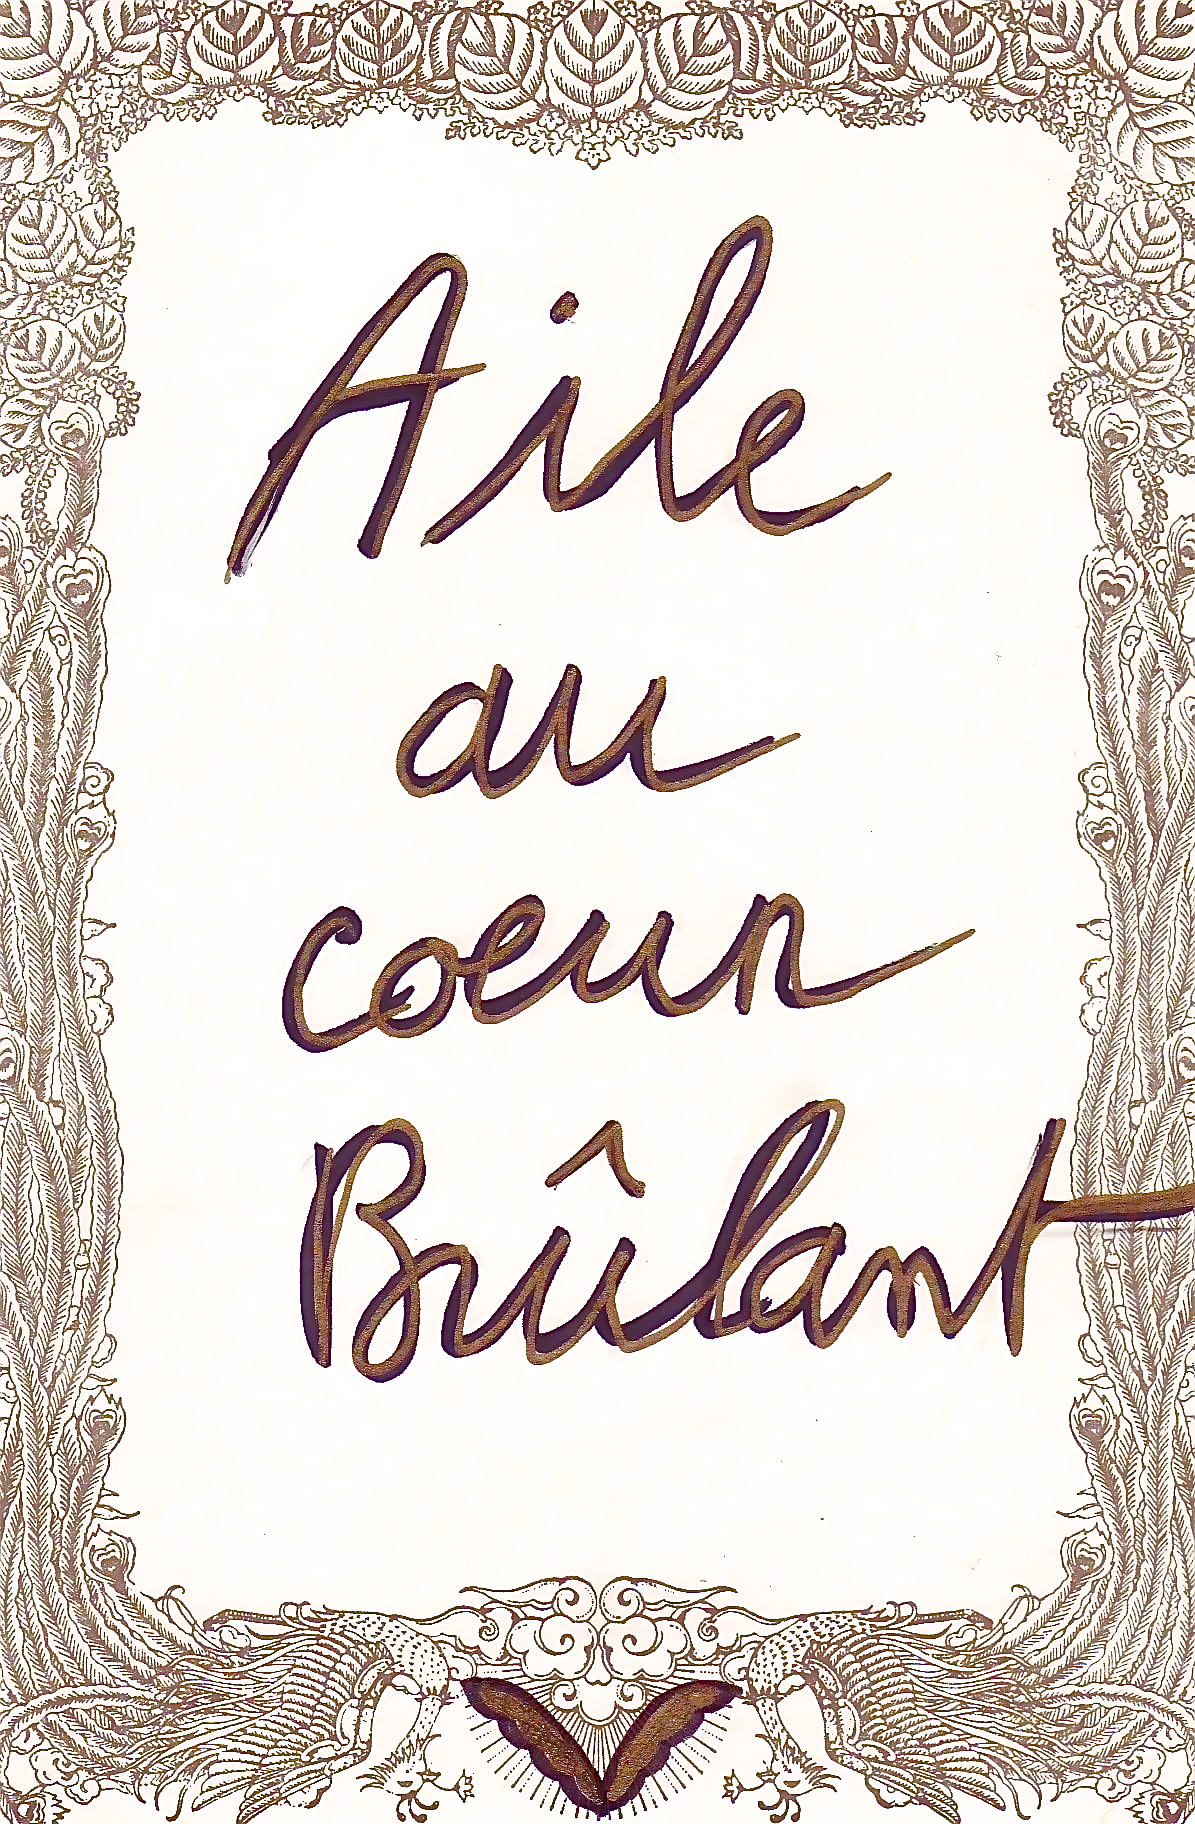 Aile
au
coeur
Brûlant